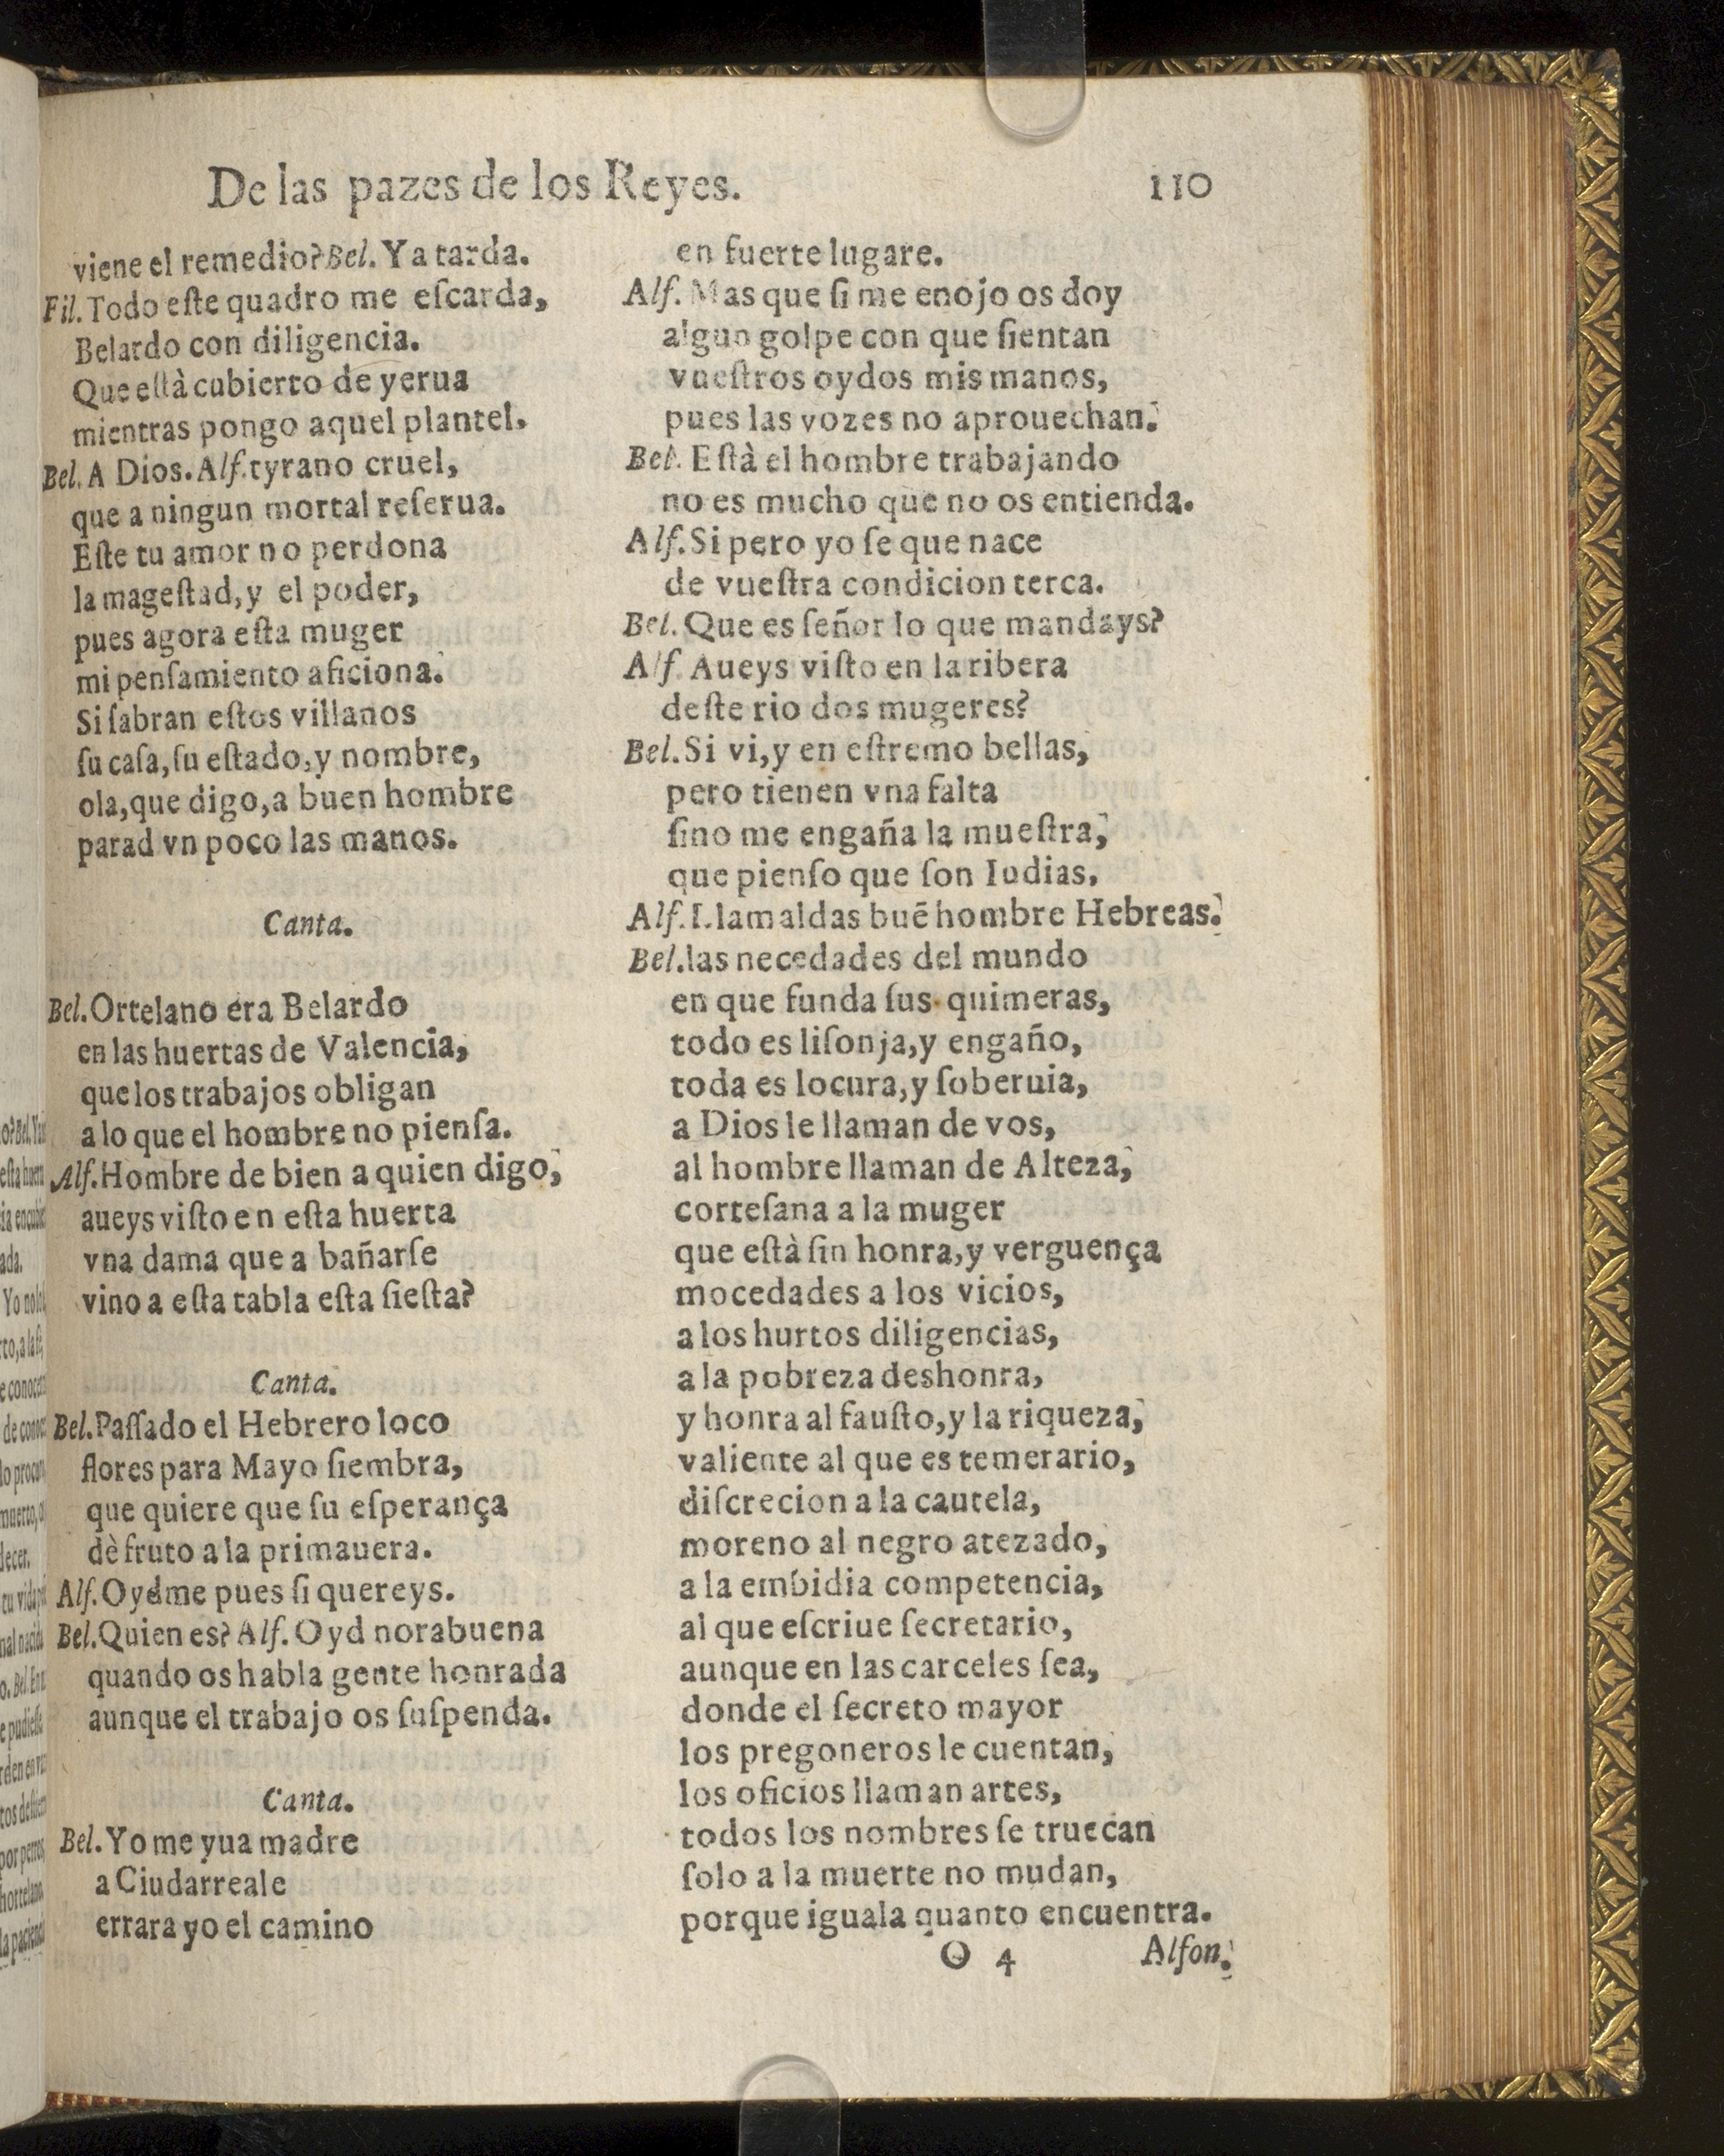 De las pazes de los Reyes. 110
viene el remedio? Bel. Ya tarda.
Fil. Todo eſte quadro me eſcarda,
Belardo con diligencia.
Que eſtà cubierto de yerua
mientras pongo aquel plantel.
Bel. A Dios. Alf. tyrano cruel,
que a ningun mortal reſerua.
Eſte tu amor no perdona
la mageſtad, y el poder,
pues agora eſta muger
mi penſamiento aficiona.
Si ſabran eſtos villanos
ſu caſa, ſu eſtado, y nombre,
ola, que digo, a buen hombre
parad vn poco las manos.
Canta.
Bel. Ortelano era Belardo
en las huertas de Valencia,
que los trabajos obligan
a lo que el hombre no pienſa.
Alf. Hombre de bien a quien digo,
aueys viſto en eſta huerta
vna dama que a bañarſe
vino a eſta tabla eſta ſieſta?
Canta.
Bel. Paſſado el Hebrero loco
flores para Mayo ſiembra,
que quiere que ſu eſperança
dè fruto a la primauera.
Alf. Oydme pues ſi quereys.
Bel. Quien es? Alf. Oyd norabuena
quando os habla gente honrada
aunque el trabajo os ſuſpenda.
Canta.
Bel. Yo me yua madre
a Ciudarreale
errara yo el camino
en fuerte lugare.
Alf. Mas que ſi me enojo os doy
algun golpe con que ſientan
vueſtros oydos mis manos,
pues las vozes no aprouechan.
Bel. Eſtà el hombre trabajando
no es mucho que no os entienda.
Alf. Si pero yo ſe que nace
de vueſtra condicion terca.
Bel. Que es ſeñor lo que mandays?
Alf. Aueys viſto en la ribera
deſte rio dos mugeres?
Bel. Si vi, y en eſtremo bellas,
pero tienen vna falta
ſino me engaña la mueſtra,
que pienſo que ſon Iudias.
Alf. Llamaldas buē hombre Hebreas.
Bel. las necedades del mundo
en que funda ſus quimeras,
todo es liſonja, y engaño,
toda es locura, y ſoberuia,
a Dios le llaman de vos,
al hombre llaman de Alteza,
corteſana a la muger
que eſtà ſin honra, y verguença
mocedades a los vicios,
a los hurtos diligencias,
a la pobreza deshonra,
y honra al fauſto, y la riqueza,
valiente al que es temerario,
diſcrecion a la cautela,
moreno al negro atezado,
a la embidia competencia,
al que eſcriue ſecretario,
aunque en las carceles ſea,
donde el ſecreto mayor
los pregoneros le cuentan,
los oficios llaman artes,
todos los nombres ſe truecan
ſolo a la muerte no mudan,
porque iguala quanto encuentra.
O 4 Alfon.